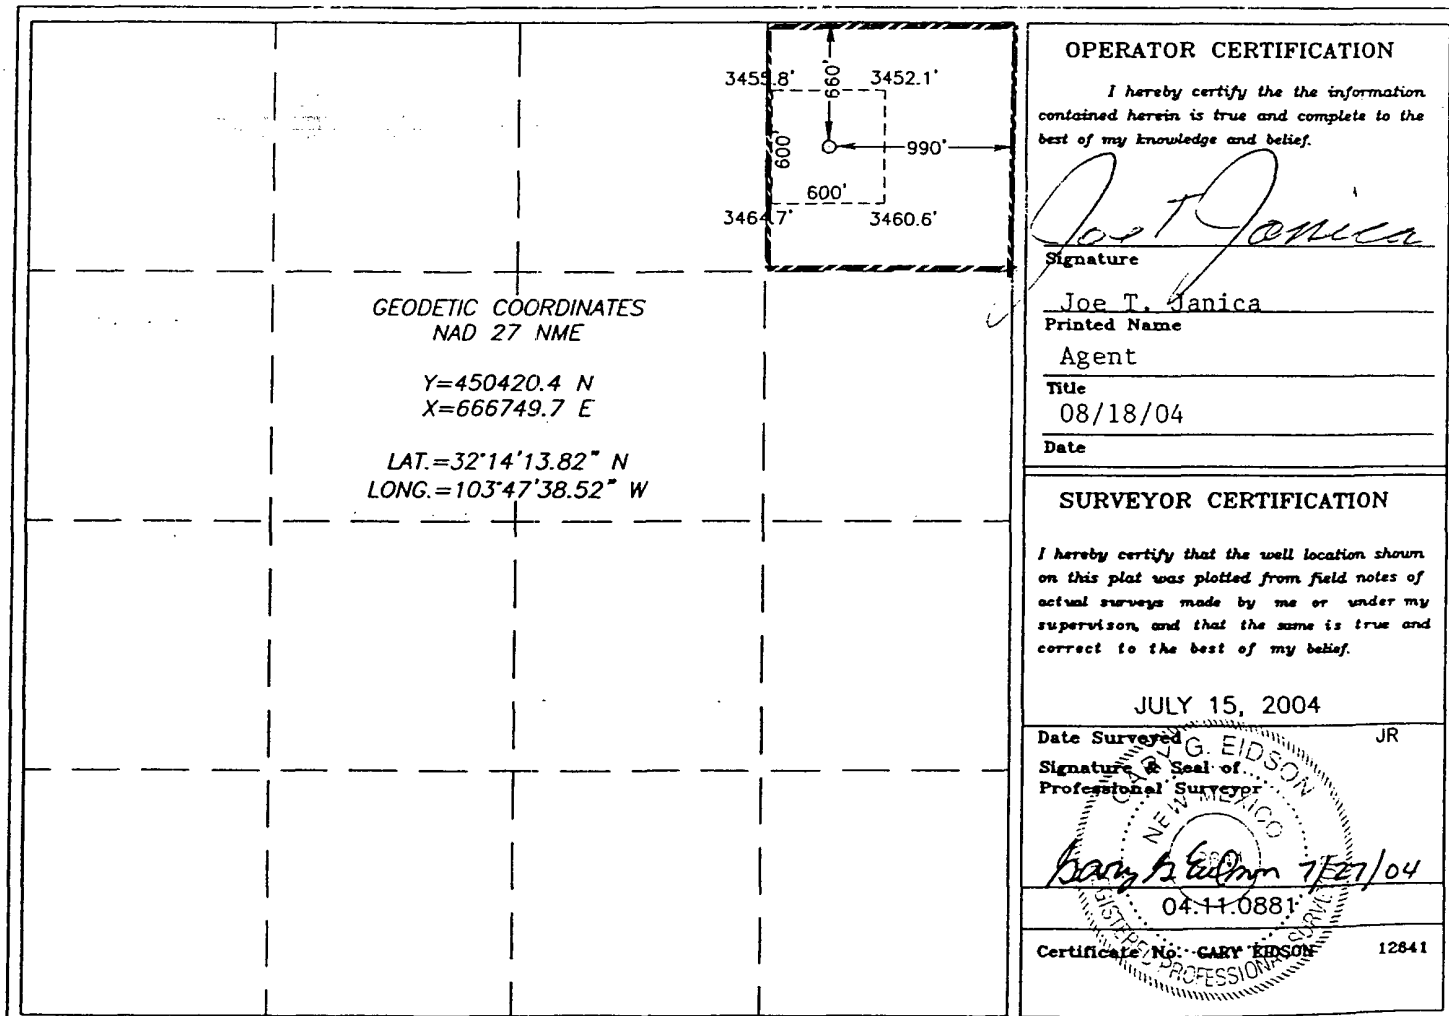 3455.8'
660'
3452.1'
600'
990'
600'
3464.7'
3460.6'
GEODETIC COORDINATES
NAD 27 NME
Y=450420.4 N
X=666749.7 E
LAT.=32°14'13.82" N
LONG.=103°47'38.52" W
OPERATOR CERTIFICATION
I hereby certify the the information
contained herein is true and complete to the
best of my knowledge and belief.
Joe T Janica
Signature
Joe T. Janica
Printed Name
Agent
Title
08/18/04
Date
SURVEYOR CERTIFICATION
I hereby certify that the well location shown
on this plat was plotted from field notes of
actual surveys made by me or under my
supervison, and that the same is true and
correct to the best of my belief.
JULY 15, 2004
Date Surveyed JR
Signature & Seal of
Professional Surveyor
GARY G. EIDSON
NEW MEXICO
REGISTERED PROFESSIONAL SURVEYOR
Gary G Eidson 7/27/04
04.11.0881
Certificate No. GARY EIDSON 12641